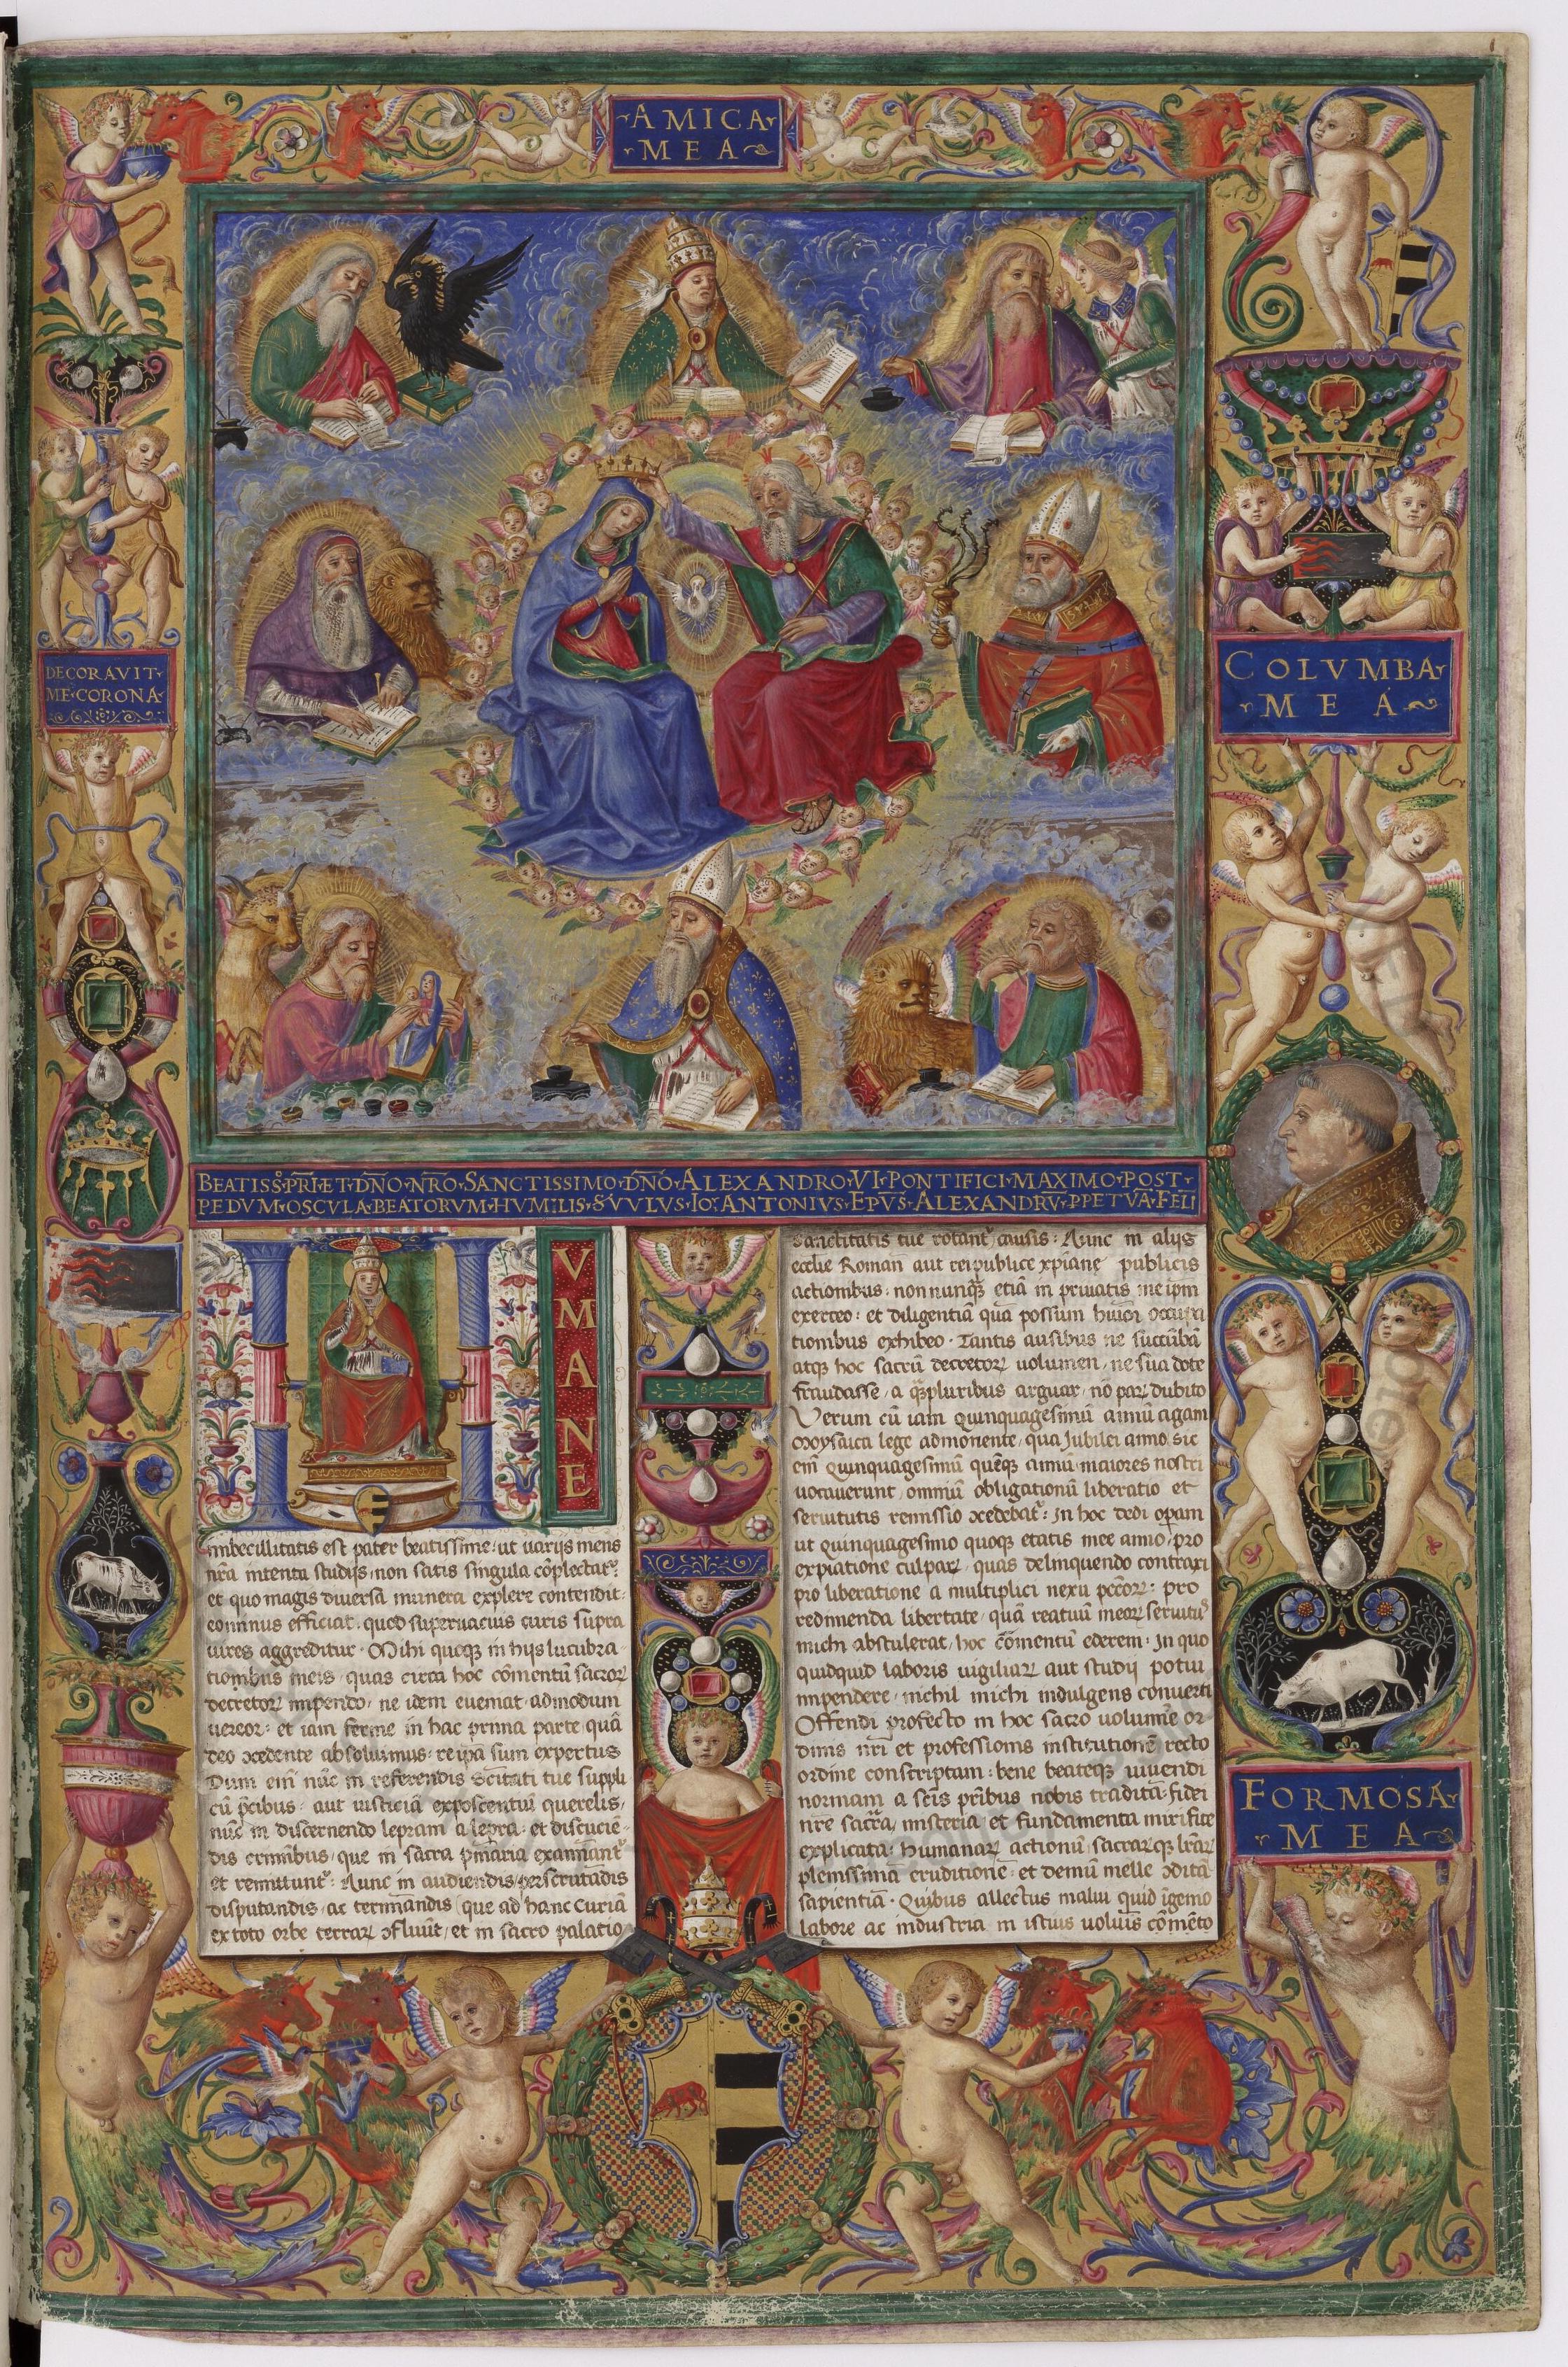 AMICA
MEA
DECORAVIT
ME·CORONA
COLVMBA
MEA
BEATISS·PRI·ET·DÑO·NRO·SANCTISSIMO·DÑO·ALEXANDRO·VI·PONTIFICI·MAXIMO·POST
PEDVM·OSCVLA·BEATORVM·HVMILIS·SVVLVS·IO·ANTONIVS·EPVS·ALEXANDRV·PPETVA·FELI
VMANE
imbecillitatis est pater beatissime: ut varijs mens
nrã intenta studijs, non satis singula cõplectat᷑:
et quo magis diversa munera explere contendit:
eo minus efficiat, quod supervacuis curis supra
vires aggreditur. Mihi quoq in hys lucubra
tionibus meis, quas circa hoc cõmentũ sacroꝝ
decretoꝝ impendo, ne idem eveniat admodum
vereor: et iam ferme in hac prima parte quã
deo ↄcedente absoluimus: re ipã sum expertus
Dum eni nũc in referendis Scitati tue suppli
cũ p̃cibus, aut iusticiã exposcentiũ querelis,
nũc in discernendo lepram a lepra, et discucie
dis criminibus, que in sacra p̃niaria examinant᷑
et remittunt᷑: Nunc in audiendis perscrutãdis
disputandis, ac terminãdis (que ad hanc Curiã
ex toto orbe terraꝝ ↄfluũt, et in sacro palatio
sanctitatis tue rotant᷑) causis: Nunc in alijs
ecclie Romañ aut reipublice xpiane publicis
actionibus, non nunq̃ȝ etiã in privatis me ipm
exerceo: et diligentiã quã possum huic occupa
tionibus exhibeo. Tantis ausibus ne succũbã
atq̃ hoc sacrũ decretoꝝ volumen, ne sua dote
fraudasse, a q̃ȝpluribus arguar, nõ paꝝ dubito
Verum cũ iam quinquagesimũ annũ agam
Moysaica lege admonente, qua Jubilei anno, sic
eni quinquagesimũ quẽq̃ annũ maiores nostri
vocaverunt, omniũ obligationũ liberatio et
servitutis remissio ↄcedebat᷑: In hoc dedi opam
ut quinquagesimo quoq̃ etatis mee anno, pro
expiatione culpaꝝ, quas delinquendo contraxi
pro liberatione a multiplici nexu pctõꝝ: pro
redimenda libertate, quã reatuũ meoꝝ servitus
michi abstulerat, hoc cõmentũ ederem: In quo
quidquid laboris vigiliaꝝ aut studij potui
impendere, nichil michi indulgens converti
Offendi profecto in hoc sacro volumĩe or
dinis nri et professionis institutionẽ recto
ordine conscriptam: bene beateq̃ vivendi
normam a scis pribus nobis traditã: fidei
nrẽ sacra misteria et fundamenta mirifice
explicata: humanaꝝ actionũ sacraꝝq̃ lraꝝ
plenissimã eruditione: et demũ melle ↄditã
sapientiã. Quibus allectus malui quid ĩgenio
labore ac industria in istius voluis cõmẽto
FORMOSA
MEA